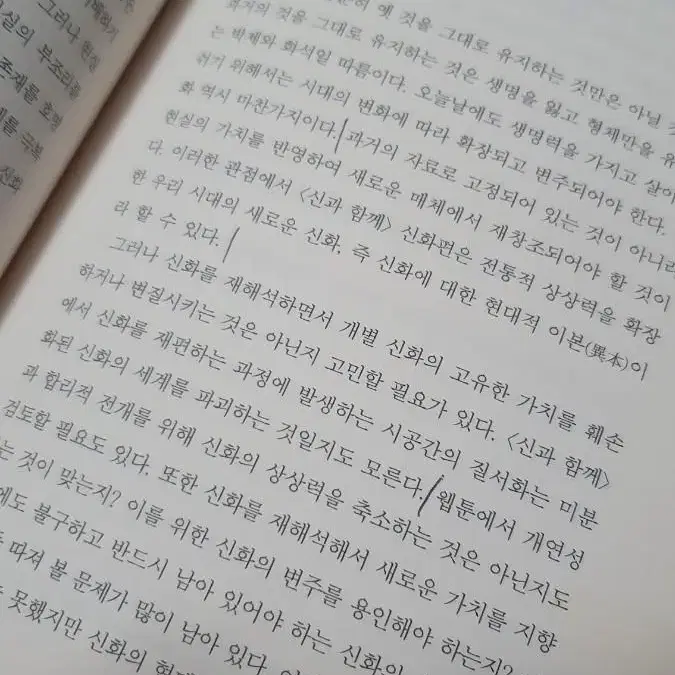 예매하기
그러나 현실
실의 부조리함
존재를 호명
를 극복
신화
옛 것을 그대로 유지하는 것만은 아닐
과거의 것을 그대로 유지하는 것은 생명을 잃고 형체만을 유
는 박제와 화석일 따름이다. 오늘날에도 생명력을 가지고 살아
위해서는 시대의 변화에 따라 확장되고 변주되어야 한다.
화 역시 마찬가지이다. 과거의 자료로 고정되어 있는 것이 아니라
현실의 가치를 반영하여 새로운 매체에서 재창조되어야 할 것이
다. 이러한 관점에서 <신과 함께> 신화편은 전통적 상상력을 확장
한 우리 시대의 새로운 신화, 즉 신화에 대한 현대적 이본(異本)이
라 할 수 있다.
그러나 신화를 재해석하면서 개별 신화의 고유한 가치를 훼손
하거나 변질시키는 것은 아닌지 고민할 필요가 있다. <신과 함께>
에서 신화를 재편하는 과정에 발생하는 시공간의 질서화는 미분
화된 신화의 세계를 파괴하는 것일지도 모른다. 웹툰에서 개연성
과 합리적 전개를 위해 신화의 상상력을 축소하는 것은 아닌지도
검토할 필요도 있다. 또한 신화를 재해석해서 새로운 가치를 지향
는 것이 맞는지? 이를 위한 신화의 변주를 용인해야 하는지?
에도 불구하고 반드시 남아 있어야 하는 신화의
따져 볼 문제가 많이 남아 있다.
못했지만 신화의